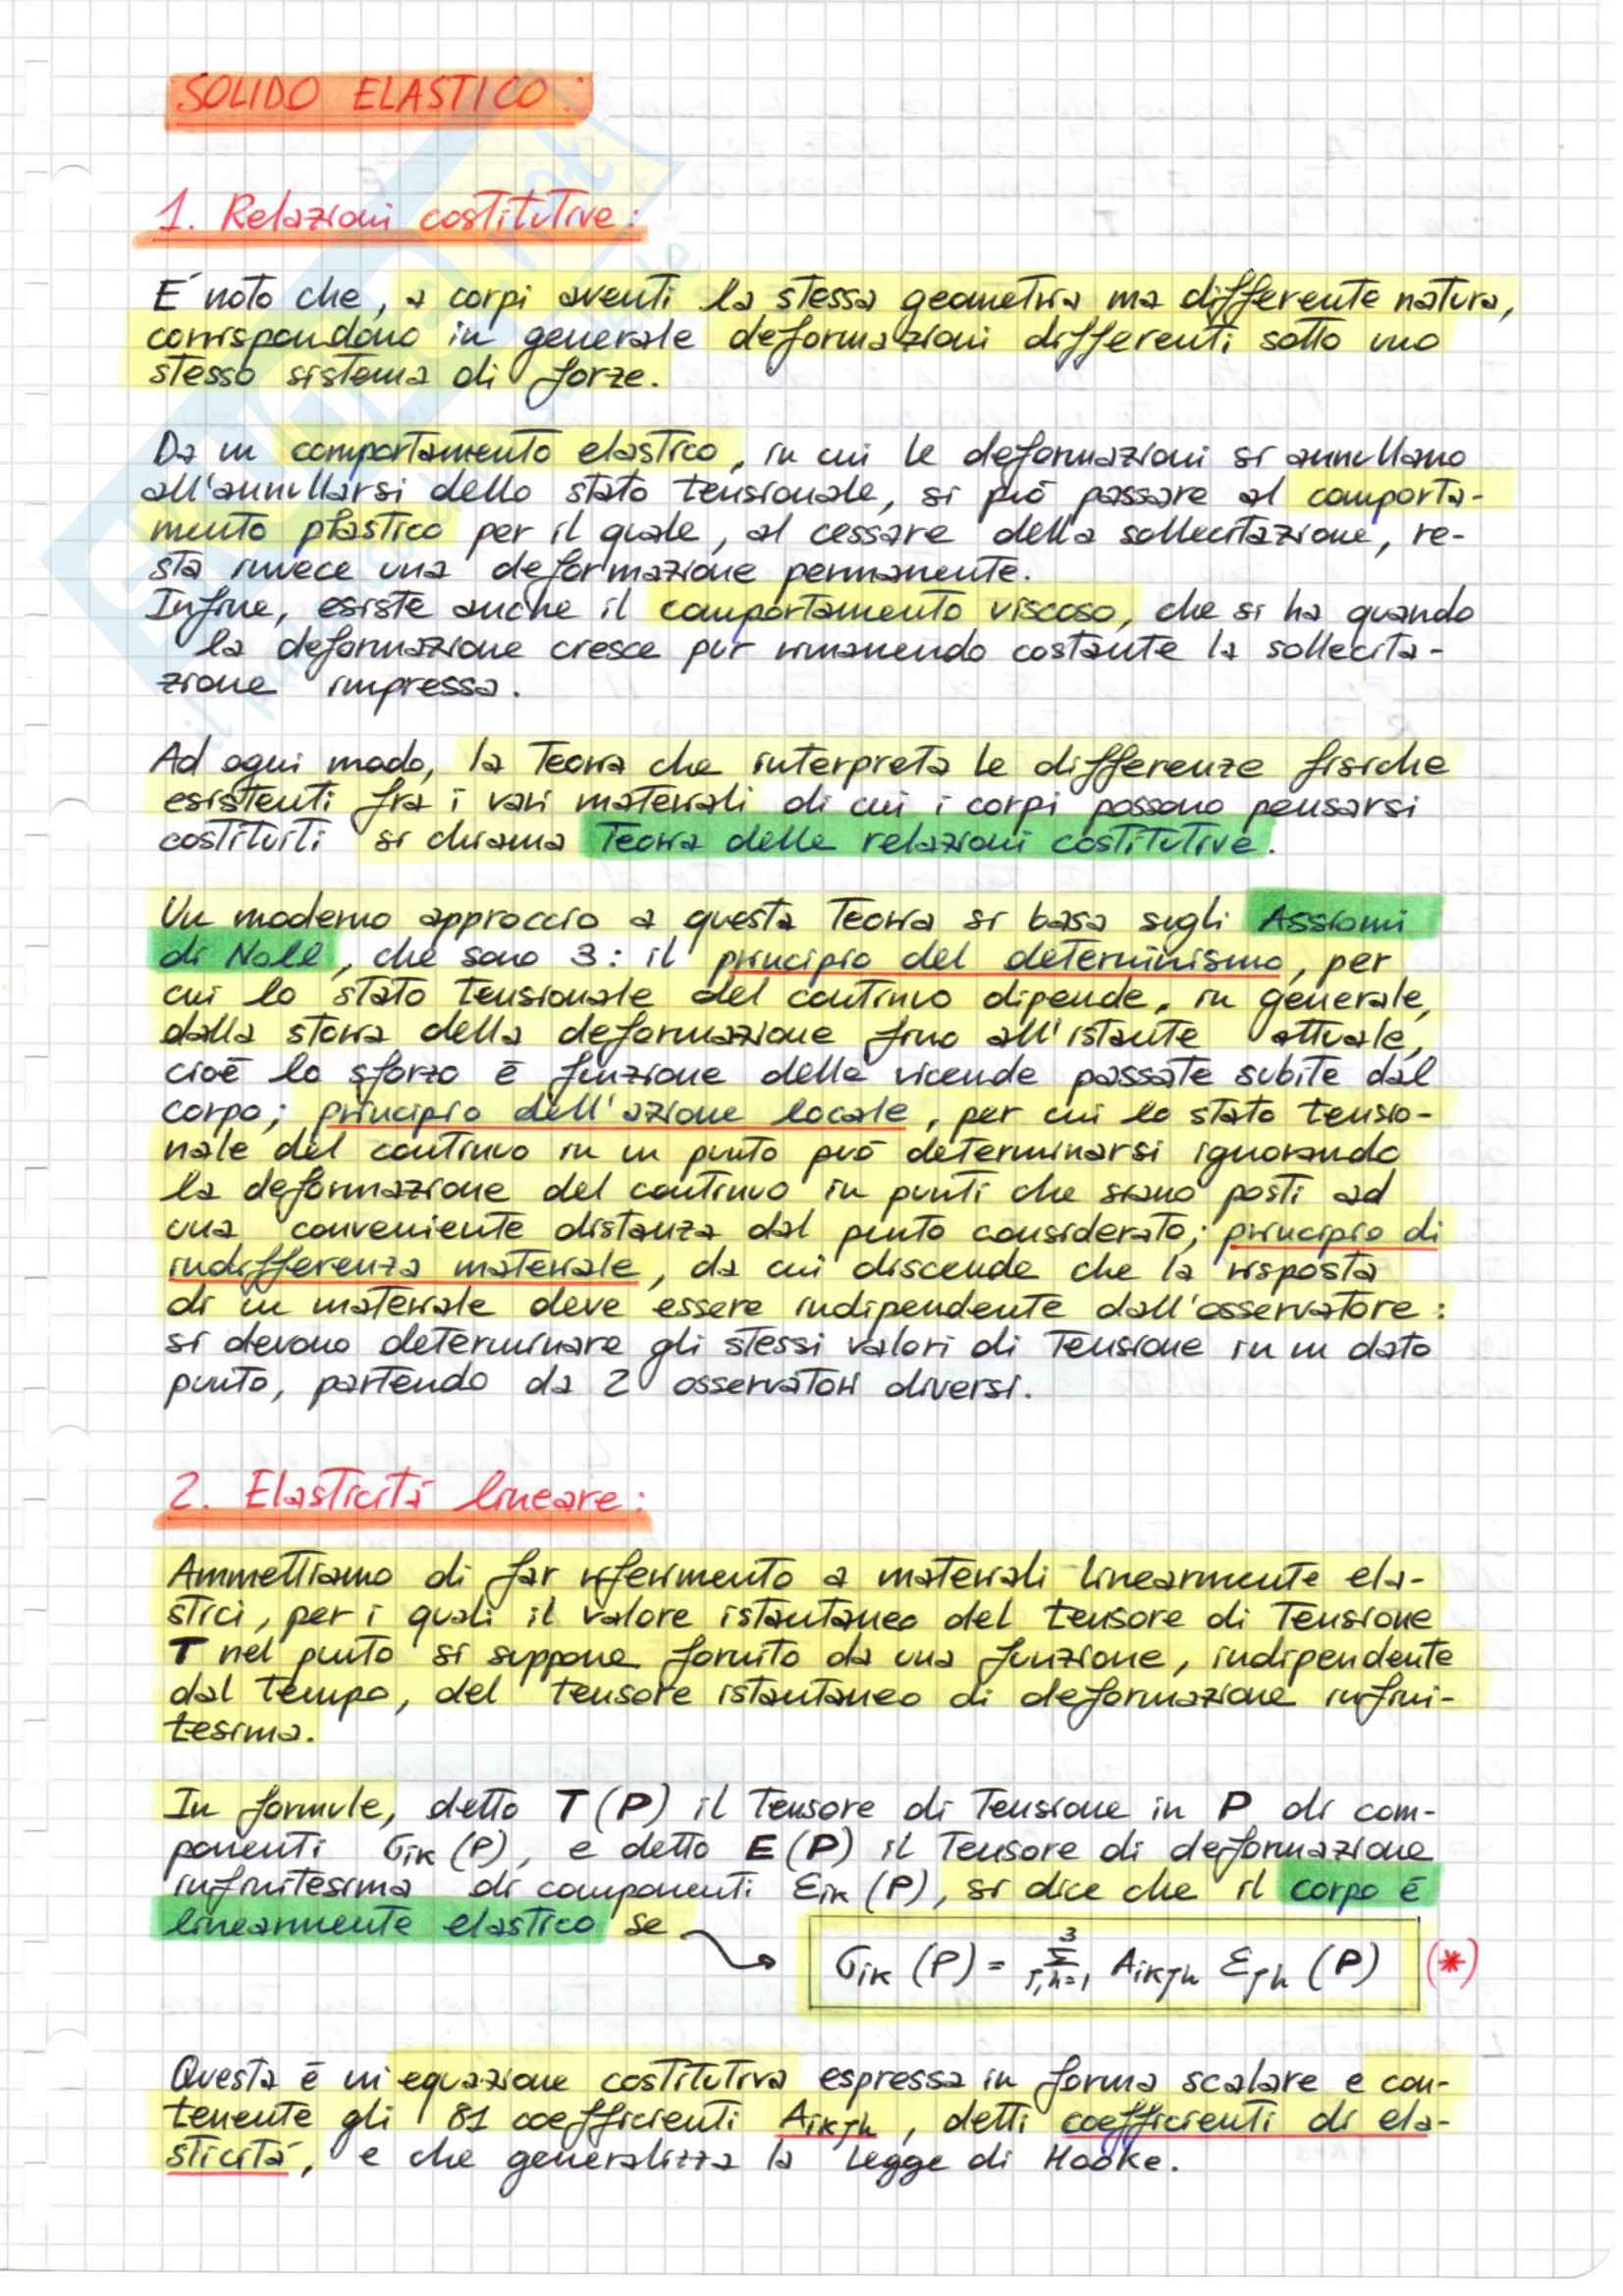 SOLIDO ELASTICO :
1. Relazioni costitutive :
E' noto che, a corpi aventi la stessa geometria ma differente natura,
corrispondono in generale deformazioni differenti sotto uno
stesso sistema di forze.
Da un comportamento elastico, in cui le deformazioni si annullano
all'annullarsi dello stato tensionale, si può passare al comporta-
mento plastico per il quale, al cessare della sollecitazione, re-
sta invece una deformazione permanente.
Infine, esiste anche il comportamento viscoso, che si ha quando
la deformazione cresce pur rimanendo costante la sollecita-
zione impressa.
Ad ogni modo, la Teoria che interpreta le differenze fisiche
esistenti fra i vari materiali di cui i corpi possono pensarsi
costituiti si chiama Teoria delle relazioni costitutive.
Un moderno approccio a questa Teoria si basa sugli Assiomi
di Noll, che sono 3: il principio del determinismo, per
cui lo stato tensionale del continuo dipende, in generale,
dalla storia della deformazione fino all'istante attuale,
cioè lo sforzo è funzione delle vicende passate subite dal
corpo; principio dell'azione locale, per cui lo stato tensio-
nale del continuo in un punto può determinarsi ignorando
la deformazione del continuo in punti che siano posti ad
una conveniente distanza dal punto considerato; principio di
indifferenza materiale, da cui discende che la risposta
di un materiale deve essere indipendente dall'osservatore :
si devono determinare gli stessi valori di Tensione in un dato
punto, partendo da 2 osservatori diversi.
2. Elasticità lineare :
Ammettiamo di far riferimento a materiali linearmente ela-
stici, per i quali il valore istantaneo del tensore di Tensione
T nel punto si suppone fornito da una funzione, indipendente
dal tempo, del tensore istantaneo di deformazione infini-
tesima.
In formule, detto T(P) il Tensore di Tensione in P di com-
ponenti σik (P), e detto E(P) il Tensore di deformazione
infinitesima di componenti εik (P), si dice che il corpo è
linearmente elastico se
σik (P) = 3 Σ j,h=1 Aikjh εjh (P) (*)
Questa è un'equazione costitutiva espressa in forma scalare e con-
tenente gli 81 coefficienti Aikjh, detti coefficienti di ela-
sticità, e che generalizza la Legge di Hooke.